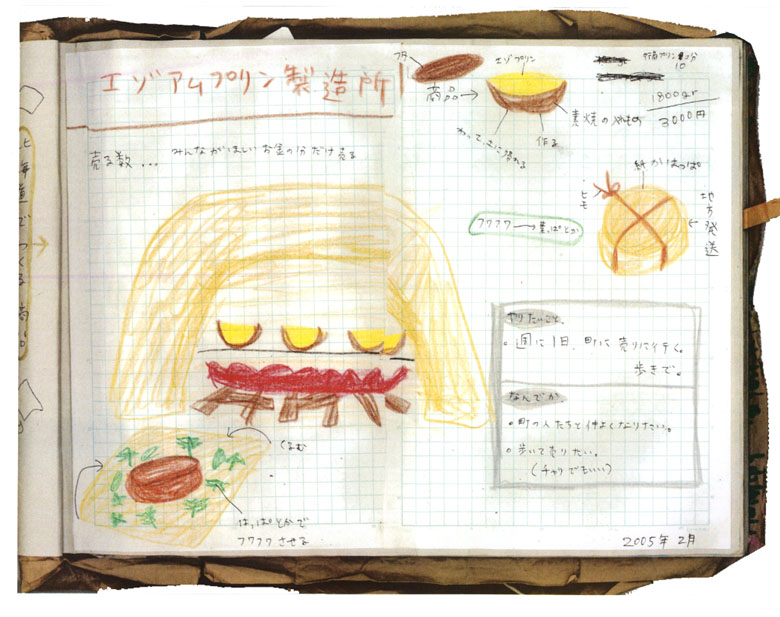 エゾアムプリン製造所
売る数... みんながほしいお金の分だけ売る
フタ
エゾプリン
商品
素焼のやきもの
作る
1800gr
3000円
10
紙かはっぱ
ヒモ
地方発送
フワフワ→葉っぱとか
やりたいこと、
・週に1日、町に売りに行く。
歩きで。
なんでか
・町の人たちと仲よくなりたい。
・歩いて売りたい。
(チャリでもいい)
くるむ
はっぱとかで
フワフワさせる
2005年 2月